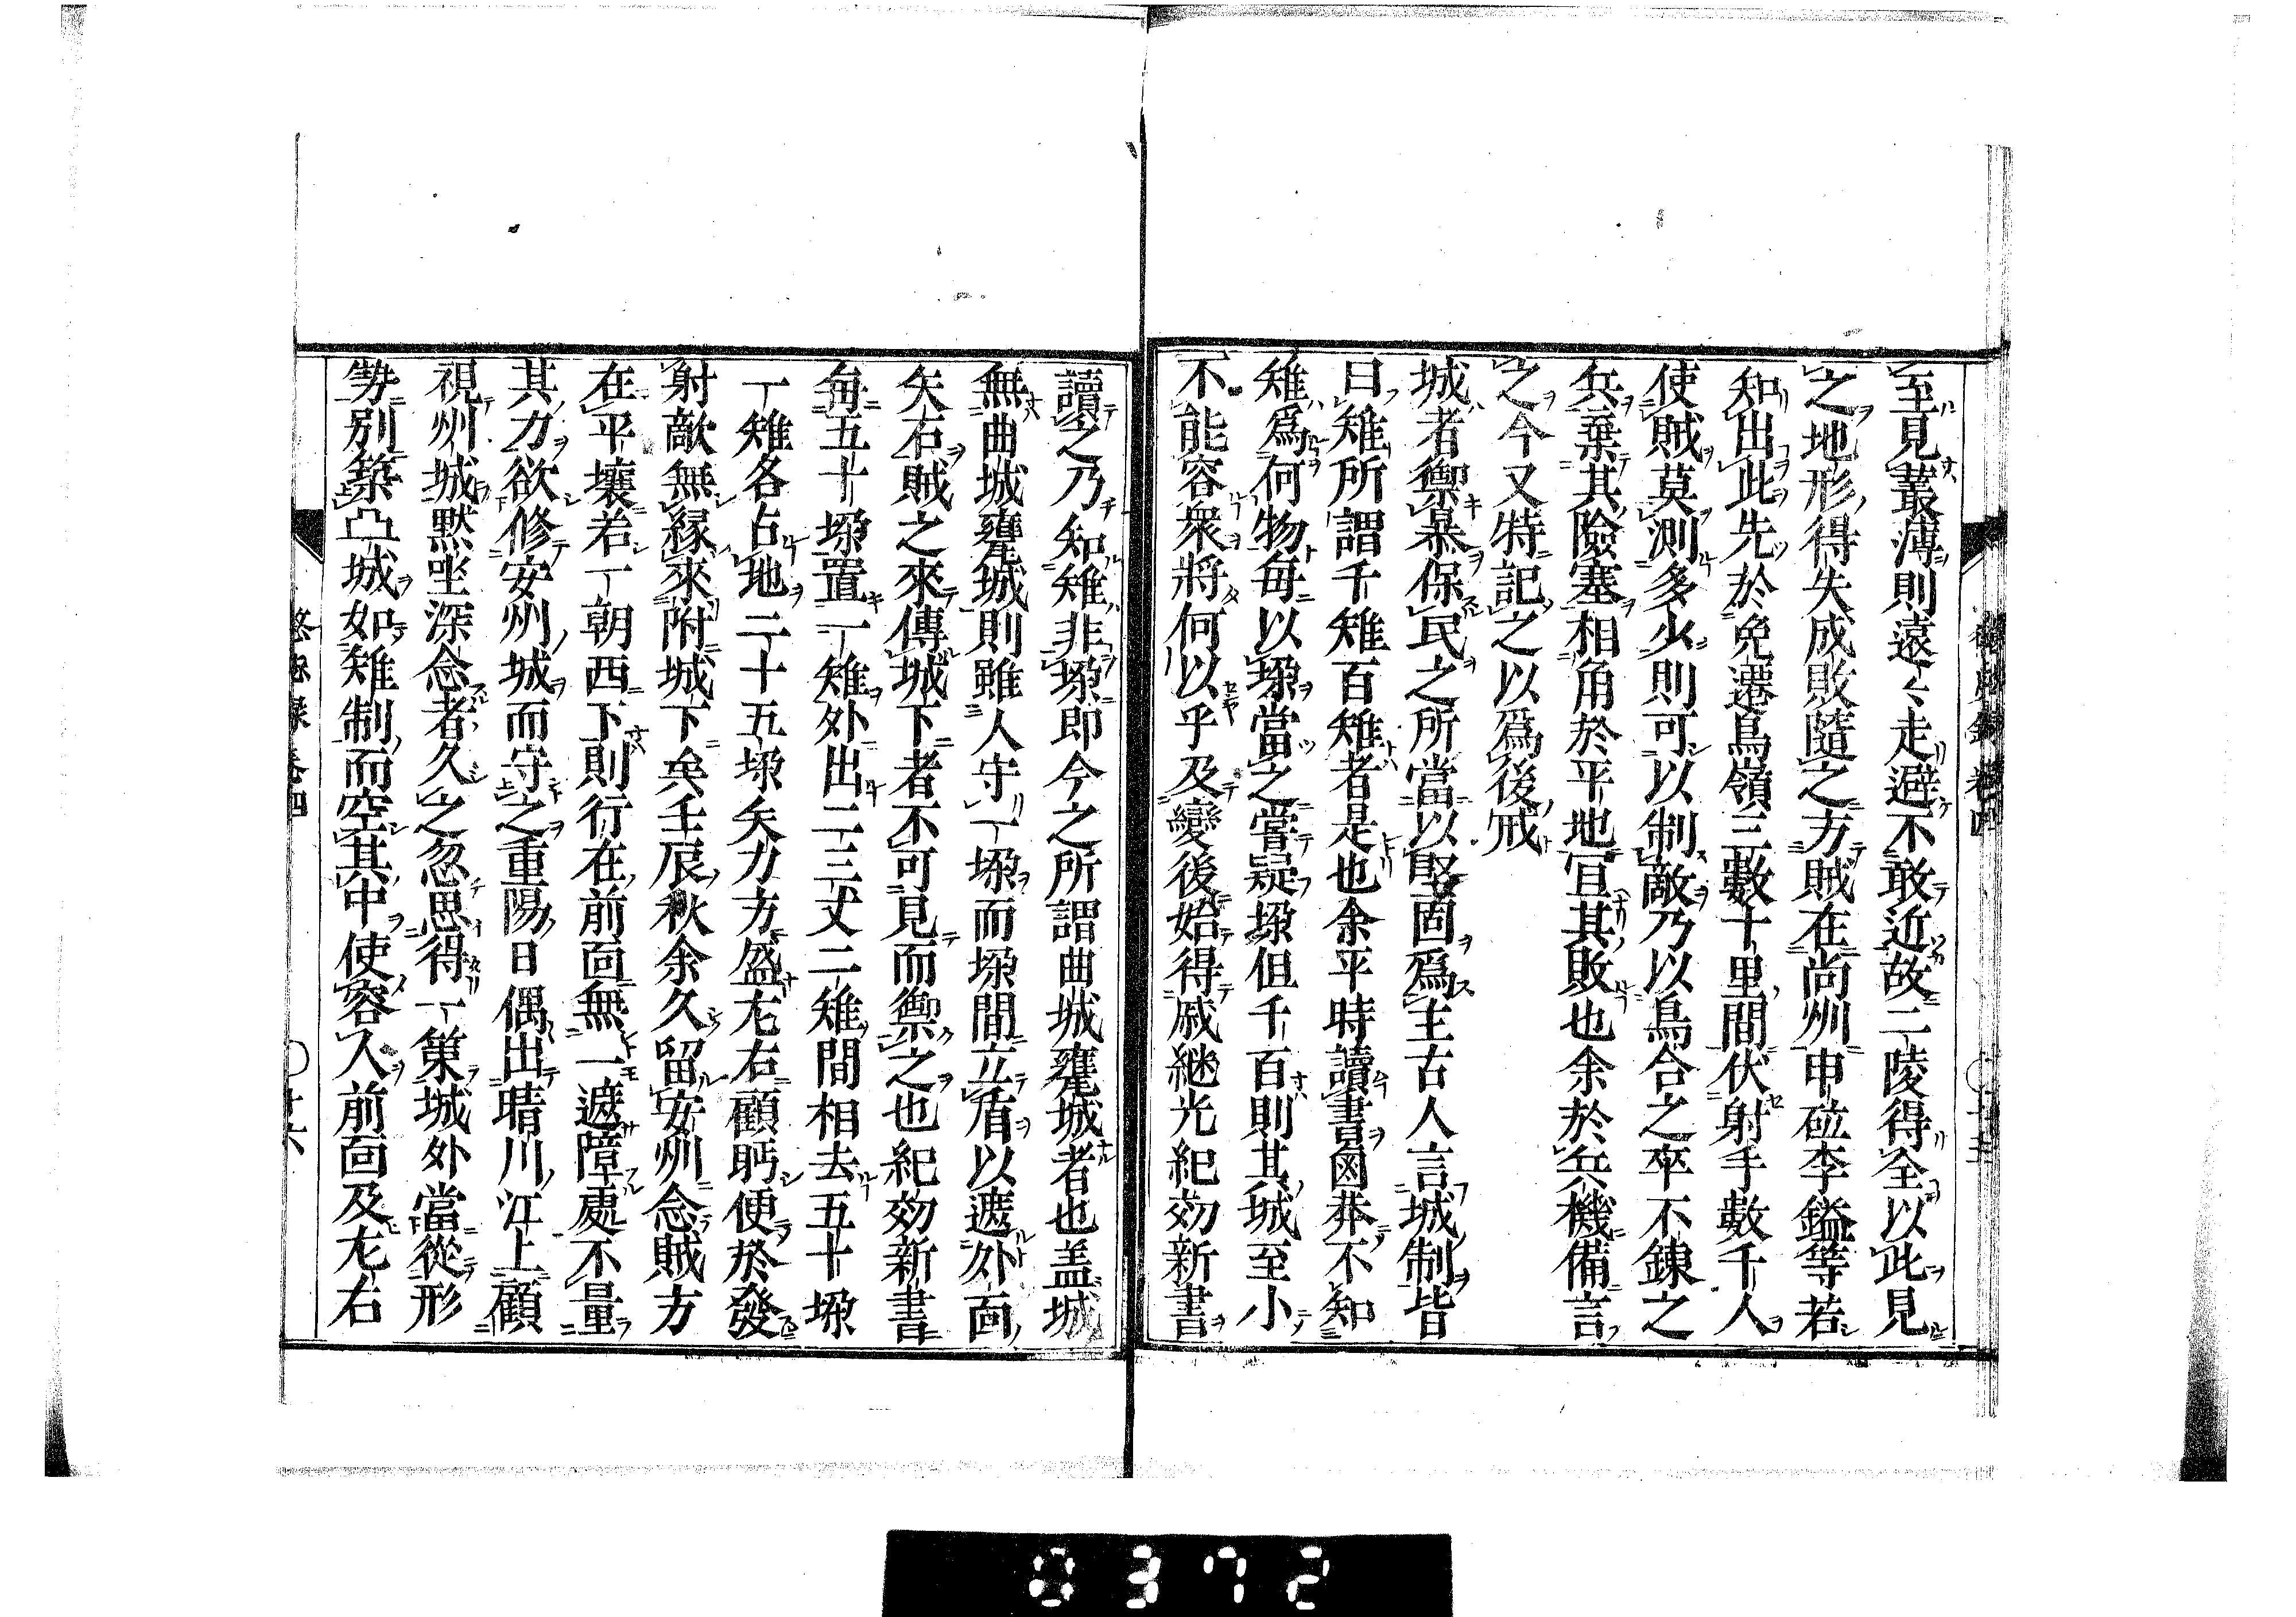 至見叢薄則遠々走避不敢近故二陵得全以此見
之地形得失成敗隨之方賊在尚州申砬李鎰等若
知出此先於兔遷鳥嶺三數十里間伏射手數千人
使賊莫測多少則可以制敵乃以烏合之卒不錬之
兵棄其險塞相角於平地宜其敗也余於兵機備言
之今又特記之以爲後戒
城者禦暴保民之所當以堅固爲主古人言城制皆
曰雉所謂千雉百雉者是也余平時讀書鹵莽不知
雉爲何物每以垜當之嘗疑垜但千百則其城至小
不能容衆將何以乎及變後始得戚継光紀効新書
讀之乃知雉非垜即今之所謂曲城甕城者也盖城
無曲城甕城則雖人守一垜而垜間立盾以遮外面
矢石賊之來傳城下者不可見而禦之也紀効新書
每五十垜置一雉外出二三丈二雉間相去五十垜
一雉各占地二十五垜矢力方盛左右顧眄便於發
射敵無縁來附城下矣壬辰秋余久留安州念賊方
在平壤若一朝西下則行在前面無一遮障處不量
其力欲修安州城而守之重陽日偶出晴川江上顧
視州城默坐深念者久之忽思得一策城外當從形
勢別築凸城如雉制而空其中使容人前面及左右
懲毖録 卷四
〇 廿六
0372